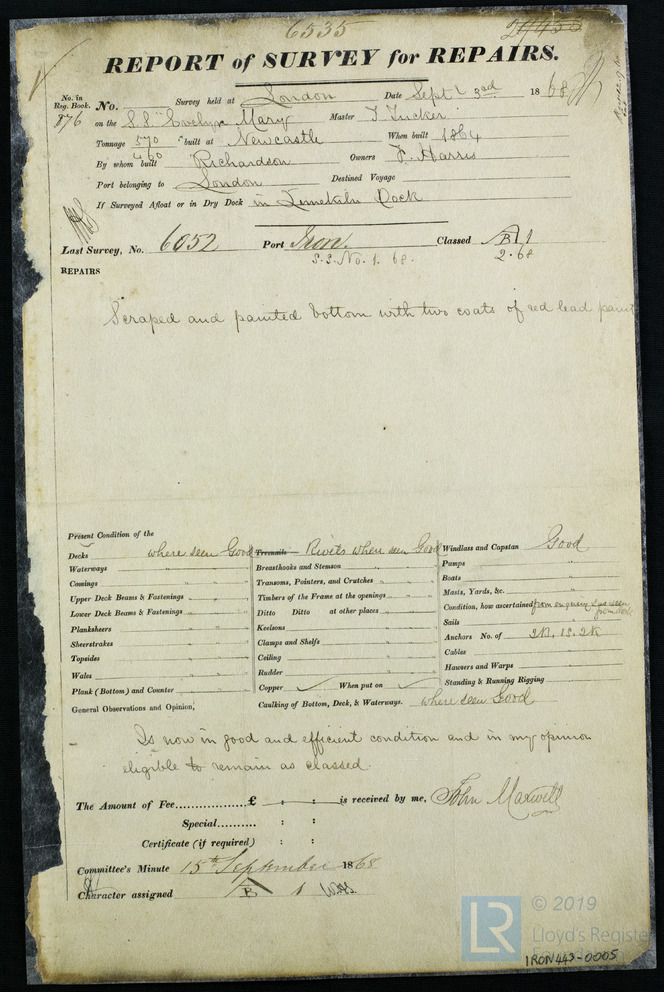 6535
REPORT of SURVEY for REPAIRS.
No. in Reg. Book. No. Survey held at London Date Sept 3rd 1868
876 on the S.S "Evelyn Mary Master T. Tucker
Tonnage 570 built at Newcastle When built 1864
460
By whom built Richardson Owners F. Harris
Port belonging to London Destined Voyage
If Surveyed Afloat or in Dry Dock in Limekiln Dock
Last Survey, No. 6052 Port Iron. Classed A B 1
S.S. No. 1. 68. 2.68
REPAIRS
Scraped and painted bottom with two coats of red lead paint
Present Condition of the
Decks where seen Good Treenails Rivets when seen Good Windlass and Capstan Good
Waterways " " Breasthooks and Stemson " " Pumps "
Comings " " Transoms, Pointers, and Crutches " " Boats "
Upper Deck Beams & Fastenings " " Timbers of the Frame at the openings " " Masts, Yards, &c. "
Lower Deck Beams & Fastenings " " Ditto Ditto at other places " " Condition, how ascertained from enquiry & as seen from deck
Planksheers " " Keelsons " " Sails "
Sheerstrakes " " Clamps and Shelfs " " Anchors No. of 2B. 1S. 2K
Topsides " " Ceiling " " Cables "
Wales " " Rudder " " Hawsers and Warps "
Plank (Bottom) and Counter " " Copper ✓ When put on ✓ Standing & Running Rigging "
General Observations and Opinion, Caulking of Bottom, Deck, & Waterways. where seen Good
Is now in good and efficient condition and in my opinion
eligible to remain as classed.
The Amount of Fee............£ : : is received by me, John Maxwell
Special......... : :
Certificate (if required) : :
Committee's Minute 15th September 1868
Character assigned A B 1
© 2019
LR Lloyd's Register
Foundation
IRON443-0005